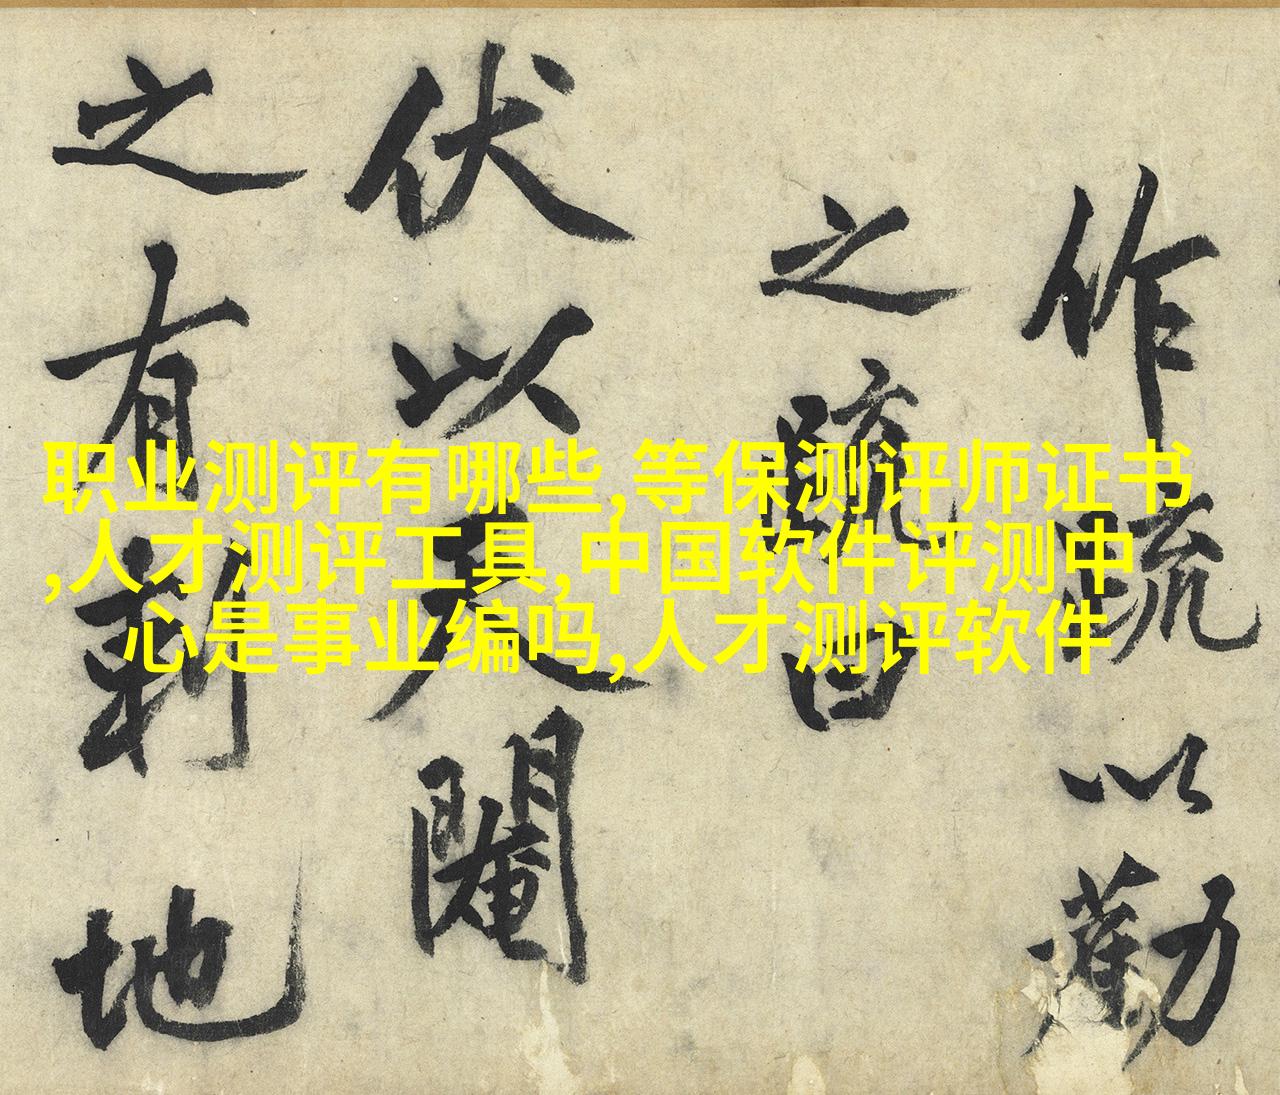 作疏以勸
之疏曰
伏以天閹
之有利地
职业测评有哪些,等保测评师证书
,人才测评工具,中国软件评测中
心是事业编吗,人才测评软件